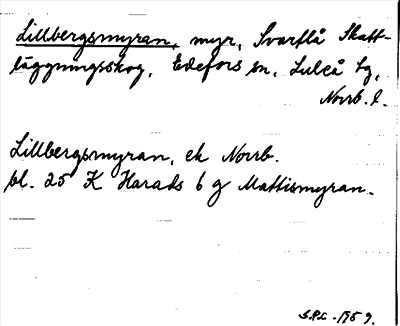 Lillbergsmyran, myr, Svartlå Skatt-
läggningsskog, Edefors sn, Luleå tg,
Norrb. l.
Lillbergsmyran, ek Norrb.
bl. 25 K Harads 6 g Mattismyran.
1959.